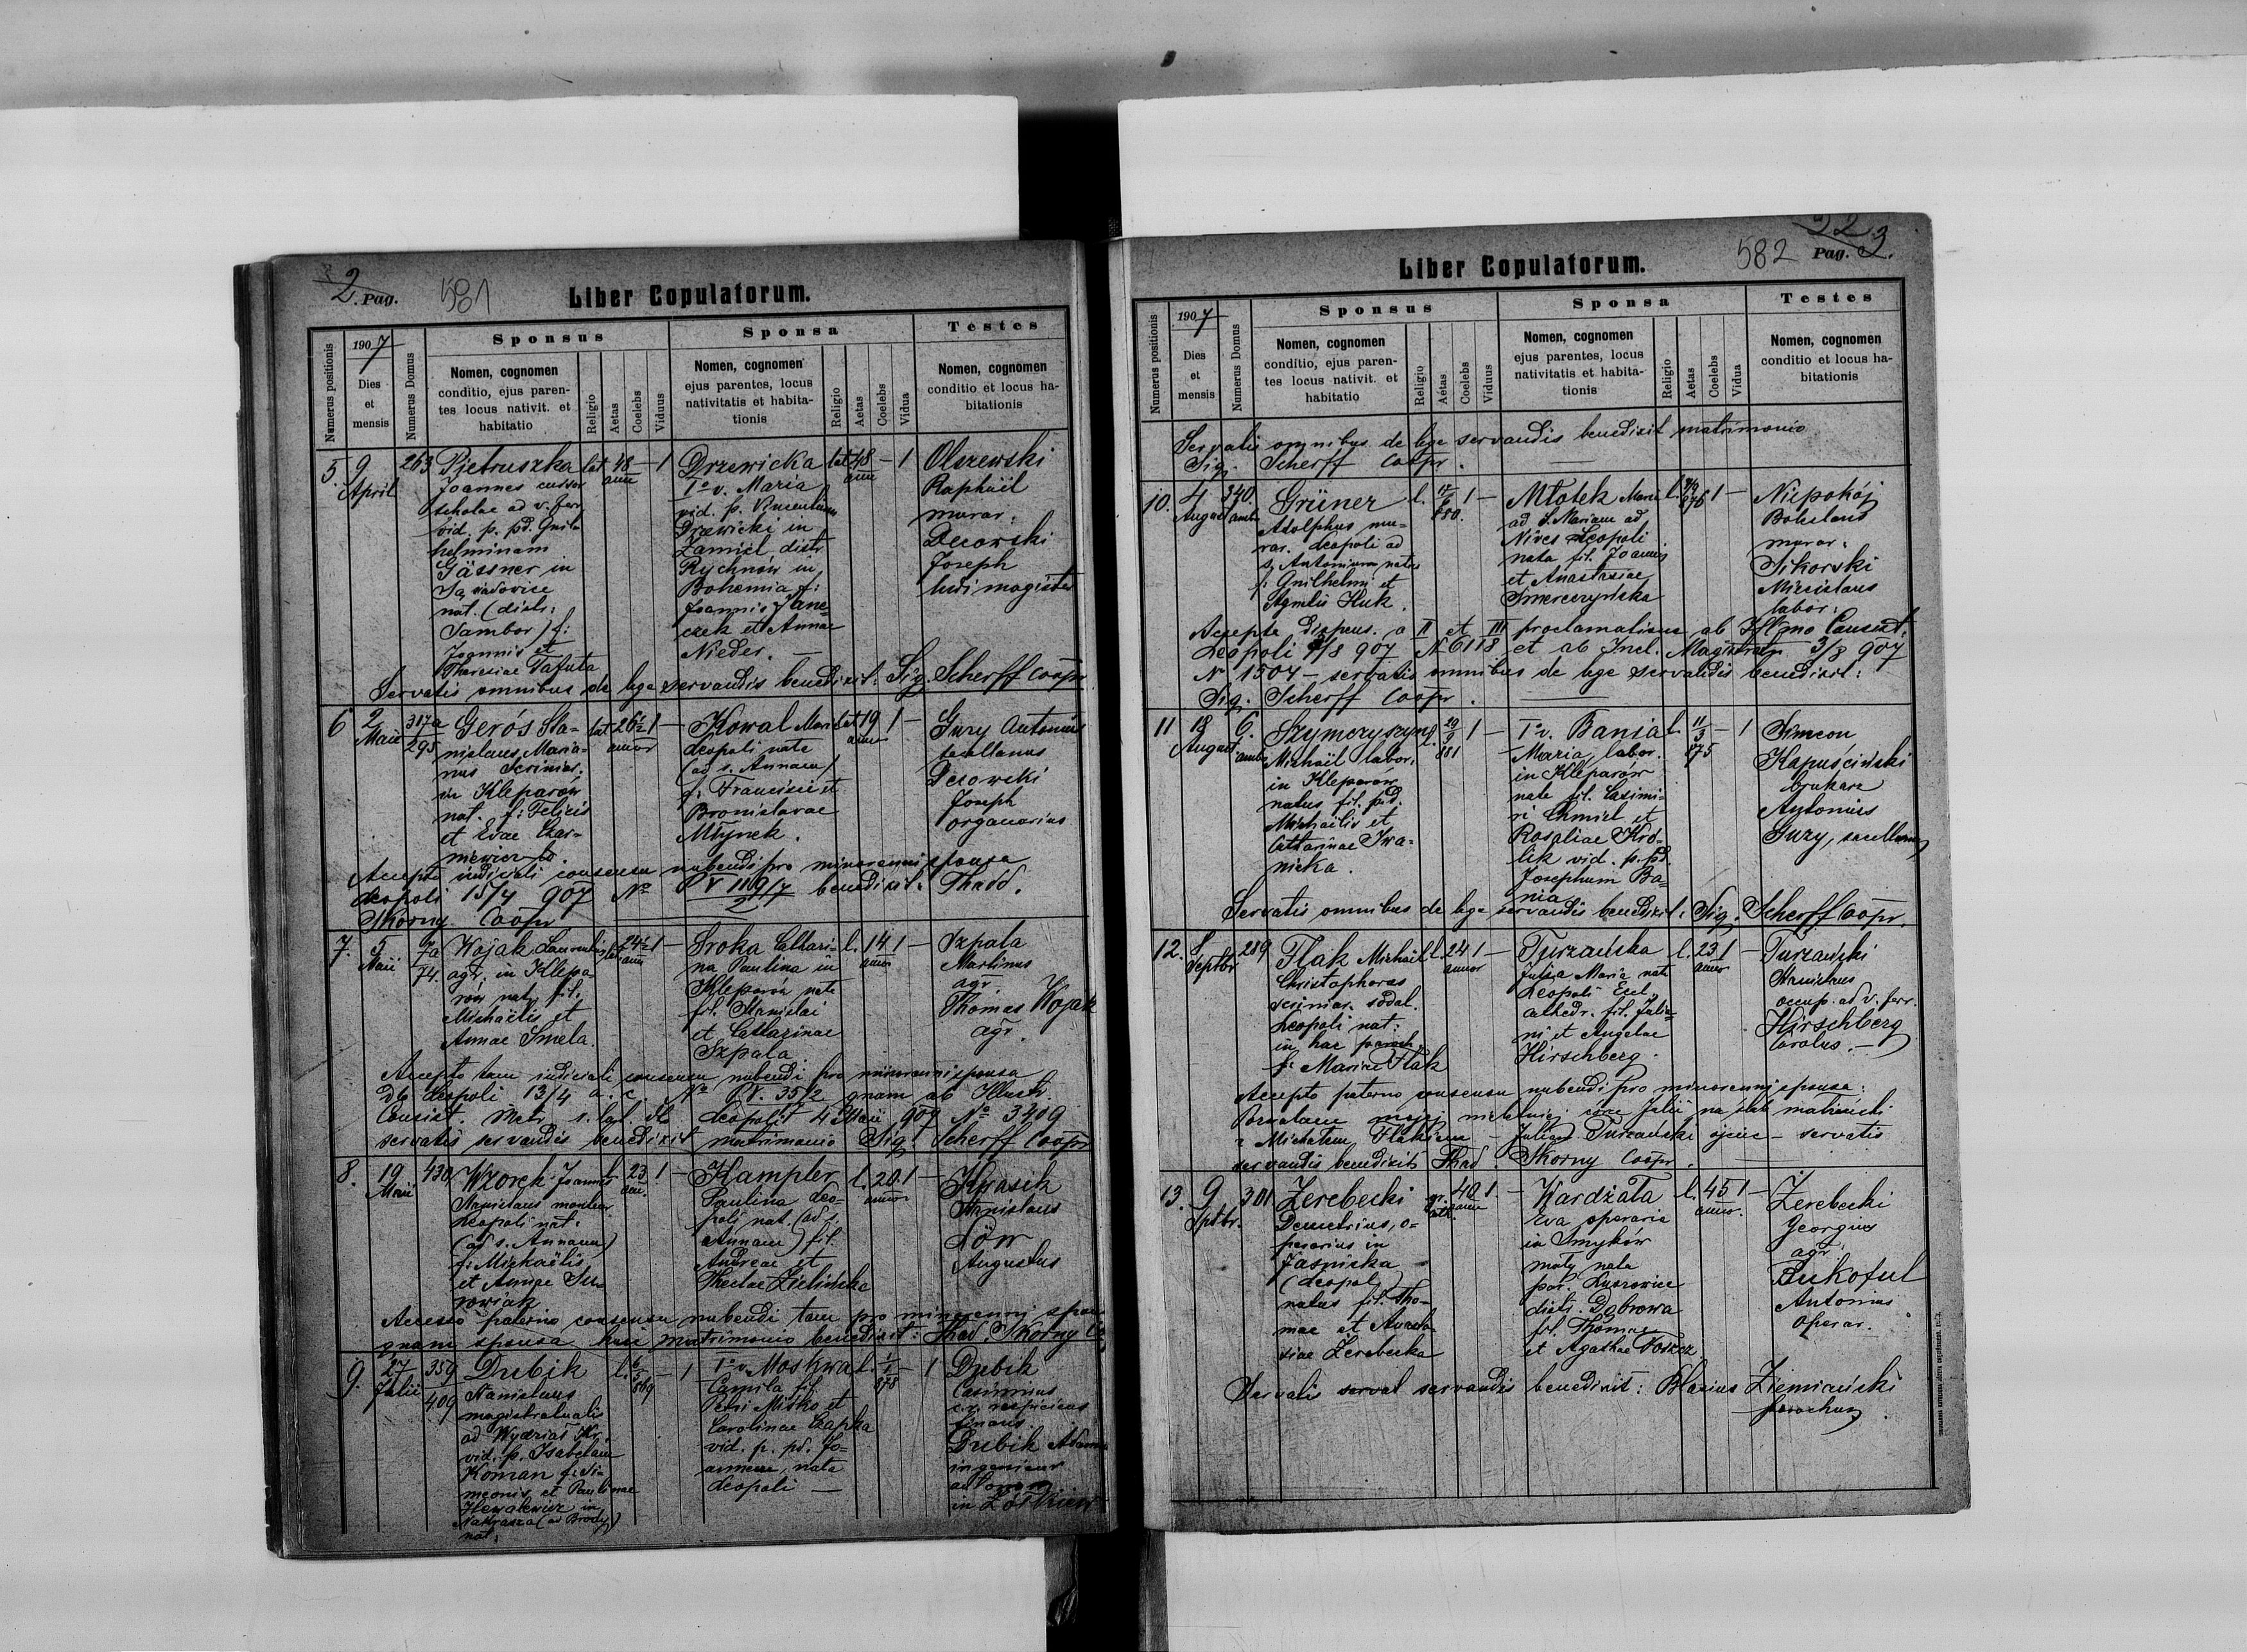 2. Pag.
581
Liber Copulatorum.
Numerus positionis
1907
Dies
et
mensis
Numerus Domus
Sponsus
Nomen, cognomen
conditio, ejus paren-
tes locus nativit. et
habitatio
Religio
Aetas
Coelebs
Viduus
Sponsa
Nomen, cognomen
ejus parentes, locus
nativitatis et habita-
tionis
Religio
Aetas
Coelebs
Vidua
Testes
Nomen, cognomen
conditio et locus ha-
bitationis
5.
9
April
263
Pietruszka
Joannes cursor
scholae ad v. ferr.
vid. p. pd. Guil-
helminam
Gässner in
nat. (distr:
Sambor) f:
Joannis et
Theresiae Tafuta
lat
48
ann
–
1
Drzewicka
Io v. Maria
vid. p.
Drzewicki in
distr.
Rychnow in
Bohemia f:
Joannis Jane-
czek et Annae
Nieder. —
lat
48
ann
–
1
Olszewski
Raphäil
murar:
Decowski
Joseph
ludi magister
Servatis omnibus de lege servandis benedixit: Sig. Scherff Coopr
6
2
Maii
317a
295
Gerós Sta-
nislaus, Maria-
nus scriniar:
in Kleparów
nat. f: Felicis
et Evae Czar-
niewicz
lat
26½
annor
1
–
Kowal Maria
Leopoli nata
(ad s. Annam)
f: Francisci et
Bronislavae
Młynek.
lat
19
ann
1
–
Jury Antonius
sacellanus
Decowski
Joseph
organarius
Accepto judiciali consensu nubendi pro minorenni sponsa
Leopoli 15/4 907 No P V 119/7 benedixit: Thadd.
2
Skorny Coopr
7.
5
Maii
7a
74.
Wojak Laurentius
agr. in Klepa-
rów nat. fil.
Michaëlis et
Annae Smela.
lat
24½
ann
1
–
Sroka Cathari-
na Paulina in
Kleparów nata
fil. Stanislai
et Catharinae
Szpala
l.
14
annor
1
–
Szpala
Martinus
agr.
Thomas Wojak
agr.
Accepto tam judiciali consensu nubendi pro minorenni sponsa
Dto Leopoli 13/4 a. c. No P.V. 35/2 quam ab Illustr.
Consist. Metr. r. lat. Leopoli 4 Maii 907 No 3409
servatis servandis benedixit matrimonio Sig. Scherff Coopr
8.
19
Maii
430
Wzorek Joannes
Stanislaus monteur
Leopoli nat.
(ad s. Annam)
f: Michaëlis
et Annae Su-
rowiak
l.
23
ann.
1
–
Hampler
Paulina Leo-
poli nat. (ad s.
Annam) fil.
Andreae et
Theclae Zielińska
l.
20.
annor
1
–
Kwasik
Stanislaus
Löw
Augustus
paterno consensu nubendi tam pro minorenni
quam sponsa huic matrimonio benedixit: Thad Skorny
9.
27
Julii
359
409
Dubik
Stanislaus
magistratualis
ad
vid. p. Isabelam
Koman f: Si-
meonis et Paulinae
in
(ad Brody)
nat:
l.
6
5
869
–
1
Io v. Moskwa
Camila fil.
Petri Misko et
Carolinae Czapka
vid. p. pd. Jo-
annem, nata
Leopoli —
l.
878
–
1
Dubik
Casimirus
c.r. respiciens
Dubik Adam
ingenieur
in
Pag. 3.
582
Liber Copulatorum.
Numerus positionis
1907
Dies
et
mensis
Numerus Domus
Sponsus
Nomen, cognomen
conditio, ejus paren-
tes locus nativit. et
habitatio
Religio
Aetas
Coelebs
Viduus
Sponsa
Nomen, cognomen
ejus parentes, locus
nativitatis et habita-
tionis
Religio
Aetas
Coelebs
Vidua
Testes
Nomen, cognomen
conditio et locus ha-
bitationis
Servatis omnibus de lege servandis benedixit matrimonio
Sig. Scherff Coopr.
10.
4
August
340.
ambo
Grüner
Adolphus mu-
rar. Leopoli ad
s. Antonium natus
f: Guilhelmi et
Agnetis Huk.
l.
17
6
880.
1
–
Młotek Maria
ad S. Mariam ad
Nives Leopoli
nata fil. Joannis
et Anastasiae
Smereczyńska
l.
876
1
–
Niepokój
Boleslaus
murar.
Sikorski
Miecislaus
labor.
Accepta dispens. a II et III proclamatione ab Illmo Consist.
Leopoli 1/8 907 N 6118 et ab Incl. Magistratu 3/8 907
No 1504 – servatis omnibus de lege servandis benedixit:
Sig. Scherff Coopr.
11
18
August
6.
ambo
Szymczyszyn
Michäil labor.
in Kleparów
natus fil. pd.
Michaëlis et
Catharinae Iwa-
nicka.
l.
29
9
881
1
–
Io v. Bania
Maria labor.
in Kleparów
nata fil. Casimi-
ri Chmiel et
Rosaliae Kró-
lik vid. p. pd.
Josephum Ba-
nia
l.
11
3
875
–
1
Simeon
Kapuściński
brukarz
Antonius
Jury, sacellanus
Servatis omnibus de lege servandis benedixit: Sig. Scherff Coopr.
12.
Septbr
289
Flak Michäil
Christophorus
scriniar. sodal.
Leopoli nat:
in hac paroch.
f: Mariae Flak
l.
24
annor
1
–
Turzańska
Julia Maria nata
Leopoli Eccl.
cathedr. fil. Julia-
ni et Angelae
Hirschberg.
l.
23
annor
1
–
Turzański
Stanislaus
occup. ad v. ferr.
Hirschberg
Carolus. —
Accepto paterno consensu nubendi pro minorenni sponsa:
Pozwalam mojej nieletniej córce Julii na ślub małżeński
z Michałem Flakiem – Julian Turzański ojciec – servatis
servandis benedixit Thad. Skorny Coopr.
13.
9
Sptbr.
301
Zerebecki
Demetrius, o-
perarius in
Jaśniska
(Leopol)
natus fil. Tho-
mae et Anasta-
siae Zerebecka
gr.
cath.
40
ann
1.
–
Wardzała
Eva operaria
in Smyków
mały nata
par. Luszowice
distr. Dąbrowa
fil. Thomae
et Agathae
l.
45
annor.
1
–
Zerebecki
Georgius
agr.
Bukoful
Antonius
operar.
Servatis serval servandis benedixit: Blasius Ziemiański
parochus